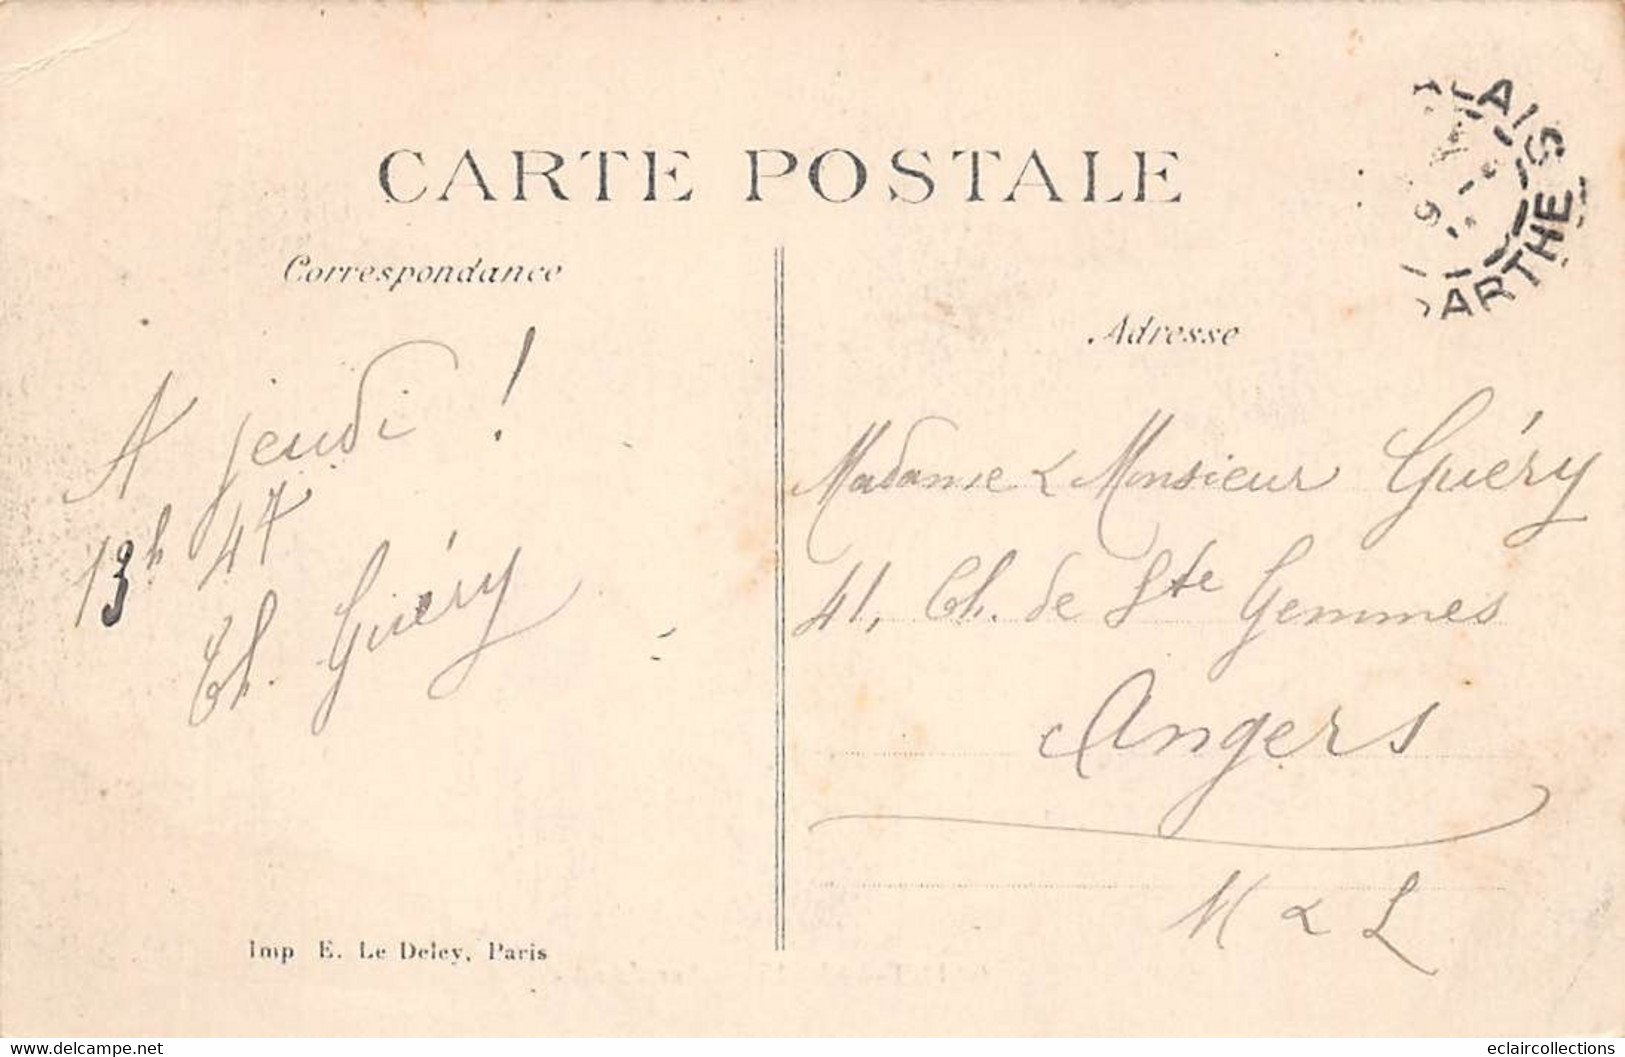 CARTE POSTALE
Correspondance
A jeudi !
13h 47
Ch. Guéry
Imp E. Le Deley, Paris
LAIS
SARTHE
Adresse
Madame & Monsieur Guéry
41, Ch. de Ste Gemmes
Angers
M & L
www.delcampe.net
eclaircollections